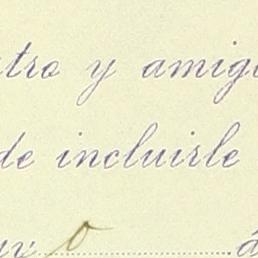 stro y amig
de incluirle
o